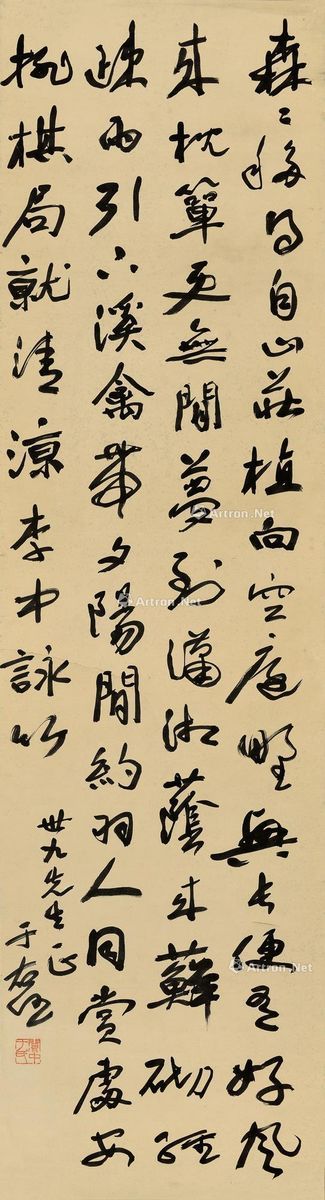 森〻移得自山莊植向空庭野興長便有好風
來枕簟更無閒夢到瀟湘蔭來蘚砌經
疎雨引下溪禽帶夕陽閒約羽人同賞處安
排棋局就清涼李中詠竹
世九先生正
于右任
關中于氏
Artron.Net
Artron.Net
Artron.Net
Artron.Net